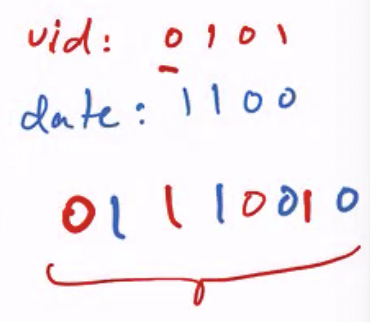 uid: 0101
date: 1100
01110010